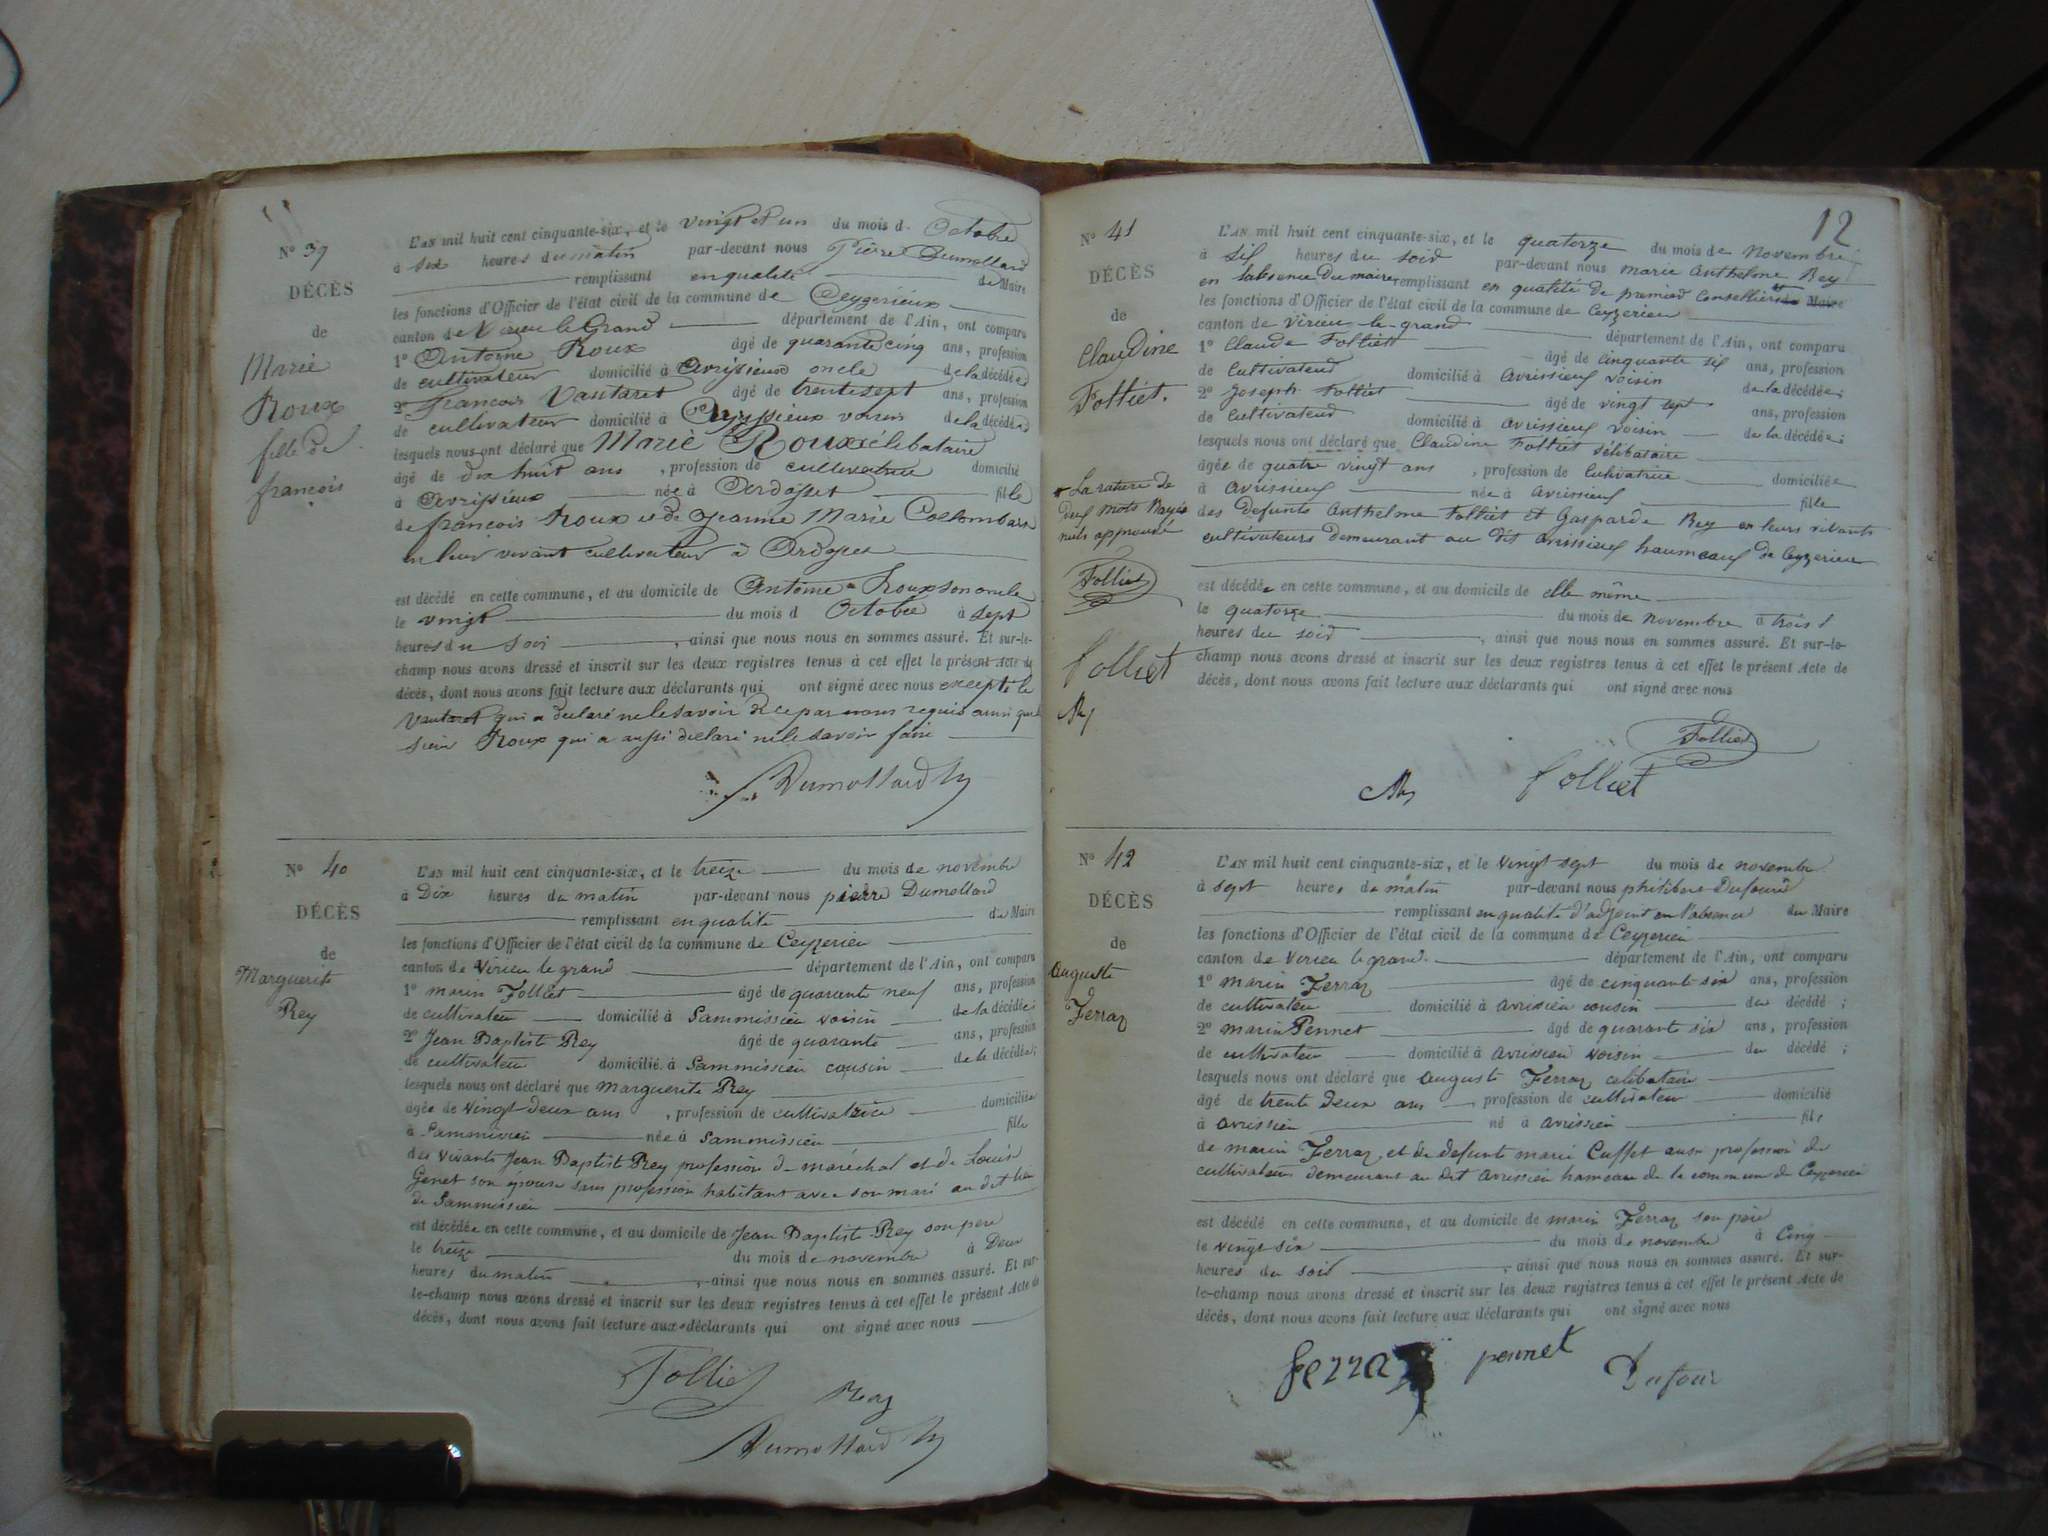 N° 39
DÉCÈS
de
Marie
Roux
fille de
françois
L'AN mil huit cent cinquante-six, et le vingt et un du mois d. Octobre
à six heures du matin par-devant nous Pierre Dumollard
remplissant en qualité de Maire
les fonctions d'Officier de l'état civil de la commune de Ceyzerieux
canton de Virieu le Grand département de l'Ain, ont comparu
1° Antoine Roux âgé de quarante cinq ans, profession
de cultivateur domicilié à Avrissieux oncle de la décédée
2° françois Vautaret âgé de trente sept ans, profession
de cultivateur domicilié à voisin de la décédée
lesquels nous ont déclaré que Marie Roux célibataire
âgé de dix huit ans, profession de cultivatrice domicilié
à Avrissieux née à Ardosset fille
de françois Roux et de Jeanne Marie
en leur vivant cultivateur à
est décédé en cette commune, et au domicile de Antoine Roux son oncle
le vingt du mois d Octobre à sept
heures du soir, ainsi que nous nous en sommes assuré. Et sur-le-
champ nous avons dressé et inscrit sur les deux registres tenus à cet effet le présent Acte de
décès, dont nous avons fait lecture aux déclarants qui ont signé avec nous excepté le
Vautaret qui a déclaré ne le savoir de ce par nous requis ainsi que le
sieur Roux qui a aussi déclaré ne le savoir faire
Dumollard
N° 40
DÉCÈS
de
Marguerite
Rey
L'AN mil huit cent cinquante-six, et le treize du mois de novembre
à Dix heures du matin par-devant nous pierre Dumollard
remplissant en qualité de Maire
les fonctions d'Officier de l'état civil de la commune de Ceyzerieu
canton de Virieu le grand département de l'Ain, ont comparu
1° marin Folliet âgé de quarante neuf ans, profession
de cultivateur domicilié à Sammissieu voisin de la décédée
2° Jean Baptiste Rey âgé de quarante ans, profession
de cultivateur domicilié à Sammissieu cousin de la décédée;
lesquels nous ont déclaré que Marguerite Rey
âgée de vingt-deux ans, profession de cultivatrice domiciliée
à Sammissieu née à Sammissieu fille
des vivants Jean Baptiste Rey profession de maréchal et de Louise
Genet son épouse sans profession habitant avec son mari au dit lieu
de Sammissieu
est décédée en cette commune, et au domicile de Jean Baptiste Rey son père
le treize du mois de novembre à Deux
heures du matin, ainsi que nous nous en sommes assuré. Et sur-
le-champ nous avons dressé et inscrit sur les deux registres tenus à cet effet le présent Acte de
décès, dont nous avons fait lecture aux déclarants qui ont signé avec nous
Folliet
Rey
Dumollard
12
N° 41
DÉCÈS
de
Claudine
Folliet.
L'AN mil huit cent cinquante-six, et le quatorze du mois de novembre
à six heures du soir par-devant nous marie anthelme Rey
en labsence du maire remplissant en qualité de premier Conseiller du Maire
les fonctions d'Officier de l'état civil de la commune de Ceyzerieu
canton de Virieu-le-grand département de l'Ain, ont comparu
1° Claude Folliet âgé de cinquante six ans, profession
de Cultivateur domicilié à avrissieux voisin de la décédée;
2° Joseph Folliet âgé de vingt sept ans, profession
de Cultivateur domicilié à avrissieux voisin de la décédée;
lesquels nous ont déclaré que Claudine Folliet sélibataire
âgée de quatre vingt ans, profession de Cultivatrice domiciliée
à avrissieux née à avrissieux fille
des defunts Anthelme Folliet et Gasparde Rey en leurs vivants
cultivateurs demeurant au dit avrissieux haumeaux de Ceyzerieu
La rature de
deux mots Rayés
nuls approuvé
Folliet
folliet
Rey
est décédée en cette commune, et au domicile de elle même
le quatorze du mois de novembre à trois
heures du soir, ainsi que nous nous en sommes assuré. Et sur-le-
champ nous avons dressé et inscrit sur les deux registres tenus à cet effet le présent Acte de
décès, dont nous avons fait lecture aux déclarants qui ont signé avec nous
Folliet
Rey folliet
N° 42
DÉCÈS
de
Auguste
Ferraz
L'AN mil huit cent cinquante-six, et le vingt sept du mois de novembre
à sept heures du matin par-devant nous philibert Dufour
remplissant en qualité d'adjoint en l'absence du Maire
les fonctions d'Officier de l'état civil de la commune de Ceyzerieu
canton de Virieu le grand département de l'Ain, ont comparu
1° marin Ferraz âgé de cinquante six ans, profession
de cultivateur domicilié à avrissieu cousin du décédé;
2° marin Pennet âgé de quarante six ans, profession
de cultivateur domicilié à avrissieu voisin du décédé;
lesquels nous ont déclaré que auguste Ferraz célibataire
âgé de trente deux ans profession de cultivateur domicilié
à avrissieu né à avrissieu fils
de marin Ferraz et de defunte marie Cuffet aussi profession de
cultivateurs demeurant au dit avrissieu hameau de la commune de Ceyzerieu
est décédé en cette commune, et au domicile de marin Ferraz son père
le vingt six du mois de novembre à Cinq
heures du soir, ainsi que nous nous en sommes assuré. Et sur-
le-champ nous avons dressé et inscrit sur les deux registres tenus à cet effet le présent Acte de
décès, dont nous avons fait lecture aux déclarants qui ont signé avec nous
ferraz pennet
Dufour